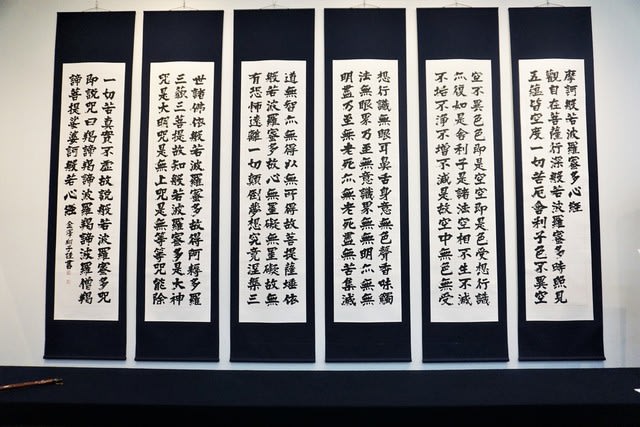 摩訶般若波羅蜜多心經
觀自在菩薩行深般若波羅蜜多時照見
五蘊皆空度一切苦厄舍利子色不異空
空不異色色即是空空即是色受想行識
亦復如是舍利子是諸法空相不生不滅
不垢不淨不增不減是故空中無色無受
想行識無眼耳鼻舌身意無色聲香味觸
法無眼界乃至無意識界無無明亦無無
明盡乃至無老死亦無老死盡無苦集滅
道無智亦無得以無所得故菩提薩埵依
般若波羅蜜多故心無罣礙無罣礙故無
有恐怖遠離一切顛倒夢想究竟涅槃三
世諸佛依般若波羅蜜多故得阿耨多羅
三藐三菩提故知般若波羅蜜多是大神
咒是大明咒是無上咒是無等等咒能除
一切苦真實不虛故説般若波羅蜜多咒
即説咒曰羯諦羯諦波羅羯諦波羅僧羯
諦菩提娑婆訶般若心經
金澤翔子謹書